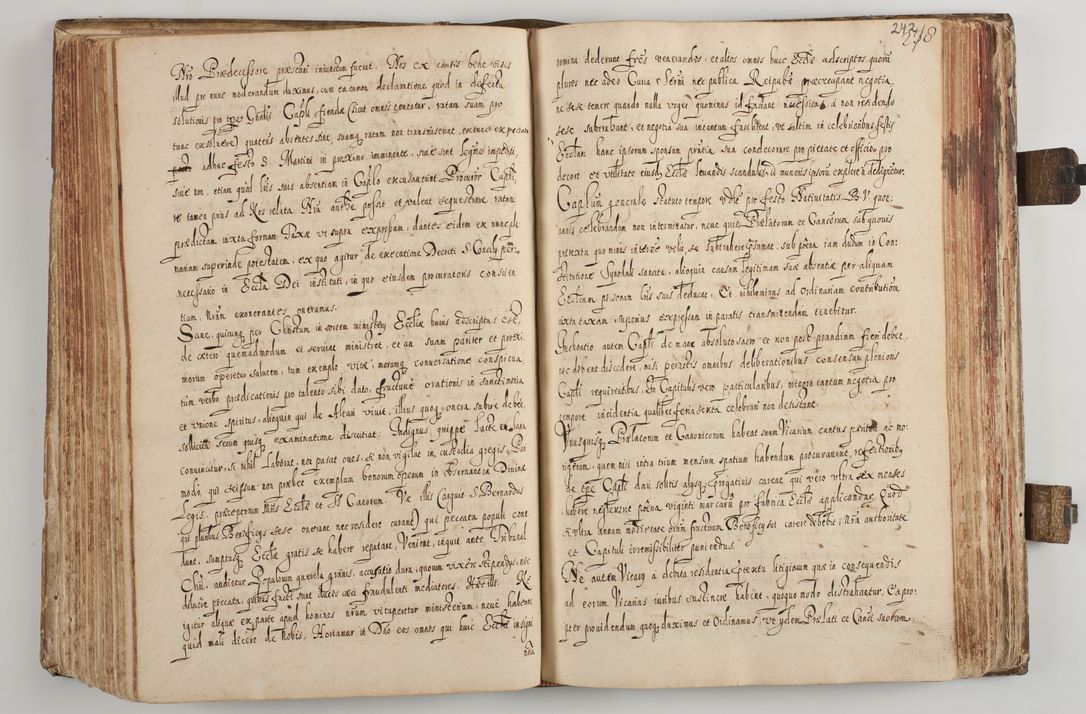 Nro Prædecessore præsenti iniunctum fuerat. Nos ex causis bene visis
illud pro nunc moderandum duximus, cum ea tamen declaratione quod in defectu
solutionis pro Gnalis Capli
tunc absentes sint, suamq; ratam non transmiserint, extunc
adhuc festo S. Martini in proximo imminente, suæ sint
suæ non, etiam quod lris suis absentiam in Caplo excusaverint Procuror Capli,
re tamen prius ad Nos relata Nra authe possit et valeat sequestrare ratam
prædictam iuxta formam Taxæ ut supra expressam, dantes eidem ex nunc ple
nariam superinde potestatem, ex quo agitur de executione Decreti S. Concilij
necessario in Eccla Dei instituti, in quo eiusdem procuratoris conscien
tiam, Nram exonerantes oneramus.
Sane, quicunq; per Christum in sortem ministerij Ecclæ huius adscriptus est,
de cætero quemadmodum et serviat ministret, et an suam pariter et proxi
morum operetur salutem, tum exemplo vitæ, morumq; conversatione conspicua,
tum verbo prædicationis pro talento sibi dato, fructuve orationis in sanctimonia
et unione spiritus, alioquin qui de Altari vivit, illius quoq; onera subire debet,
sollicite secum quisq; examinatione discutiat; Indignus quippe lacte et lana
convincitur, si nihil laborat, non pascit oves, et non vigilat in custodia gregis,
modo qui seipsum non præbet exemplum bonorum operum in observantia Divinæ
Legis, præceptorum Ecclæ et SS. Canonum. Væ illis (arguit S. Bernardus
qui pluribus Beneficijs sese onerare nec residere curant) qui peccata populi come
dunt, sumptusq; Ecclæ gratis se habere reputant, Venient, inquit ante Tribunal
Chri, audietur Populorum querela gravis, accusatio dura, quorum vixere stipendijs, nec
diluere peccata, quibus facti sunt duces cæci fraudulenti mediatores. Hæc ille. Ne
igitur aliqua ex parte apud homines nrum vituperetur ministerium, neve habeant
quid mali dicere de Nobis, Hortamur in Dno eos omnes qui huic Ecclæ insigni
nomi

242
248
nomina dederunt fres venerandos, et alios omnes huic Ecclæ adscriptos, quoru
plures nec adeo Cura S. Sermi nec publica Reipubcæ præoccupant negotia,
ne sese temere quando nulla urget quominus id faciant necessitas, à non residendo
sese subtrahant, et negotia sua in tantum facilitent, ut saltim in celebrioribus festis
Ecclam hanc ipsorum sponsam prntia sua condecorare pro pietate et officio, pro
decore et utilitate eiusq; Ecclæ levandis scandalis, ac muneris ipsorum explere n dedignetur.
Caplum generale Statuto tempore uti pro festo Nativitatis B. V. quot
annis celebrandum non intermittatur, neve quis Prælatorum et Canoorum sub quovis
prætextu quo minus intersit velit se subtrahere præsumat, sub pœna iam dudum in Con
stitutione Synodali sancita, alioquin causam legitimam suæ absentiæ per aliquam
Ecclicam personam lris suis deducat, Et nihilominus ad ordinariam contributionem
iuxta taxam superius expressam in paratis transmittendam tenebitur.
Inchoatio autem Capli de mane absoluto sacro et non post prandium fieri debet,
nec debent discedere, nisi peractis omnibus deliberationibus consensum plenioris
Capli requirentibus, In Capitulis vero particularibus, minora tantum negotia pro
tempore incidentia qualibet feria sexta celebrari non desistant.
Unusquisq; Prælatorum et Canonicorum habeat suum Vicarium cantus peritum ac mo
rigerum, quem nisi intra trium mensium spatium habendum procuraverint, refectionibus
de Capli dari solitis alijsq; prærogativis careat, qui vero ultra sex menses
habere neglexerit pœna viginti marcarum pro fabrica Ecclæ applicandarum, Quod
si ultra annum medietate omnium fructuum Beneficij sui carere debebit, Nra authoritate
et Capituli irremissibiliter puniendus.
Ne autem Vicarij à debita residentia prætextu litigiorum quæ in consequendis
ad eorum Vicarias iuribus sustinere habent, quoquo modo distrahantur, Ea pro
pter providendum quoq; duximus et Ordinamus, ut ijdem Prælati et Canci suorum,